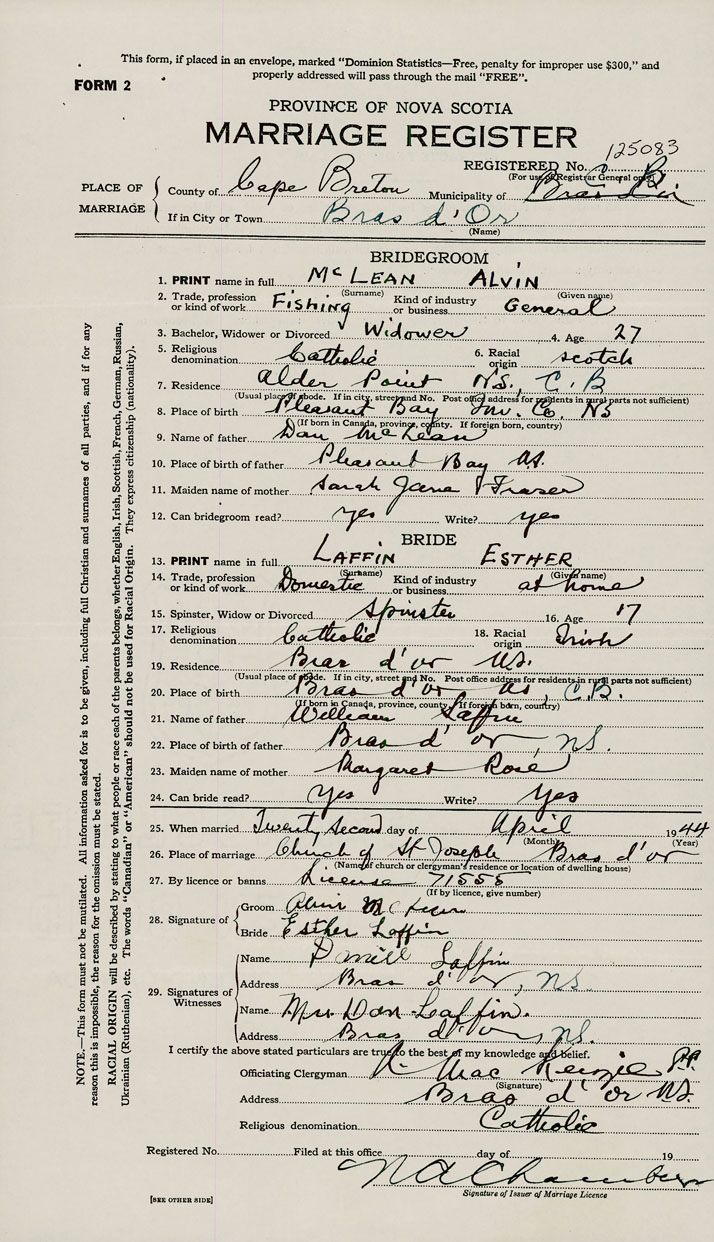 This form, if placed in an envelope, marked “Dominion Statistics—Free, penalty for improper use $300,” and
properly addressed will pass through the mail “FREE”.
FORM 2
PROVINCE OF NOVA SCOTIA
MARRIAGE REGISTER
125083
REGISTERED No.
(For use of Registrar General only)
PLACE OF MARRIAGE
County of Cape Breton Municipality of
If in City or Town Bras d'Or
(Name)
BRIDEGROOM
1. PRINT name in full McLEAN ALVIN
(Surname) (Given name)
2. Trade, profession or kind of work Fishing Kind of industry or business General
3. Bachelor, Widower or Divorced Widower 4. Age 27
5. Religious denomination Catholic 6. Racial origin scotch
7. Residence Alder Point N.S., C.B
(Usual place of abode. If in city, street and No. Post office address for residents in rural parts not sufficient)
8. Place of birth Pleasant Bay Inv. Co, NS
(If born in Canada, province, county. If foreign born, country)
9. Name of father Dan McLean
10. Place of birth of father Pleasant Bay NS.
11. Maiden name of mother Sarah Jane Fraser
12. Can bridegroom read? yes Write? yes
BRIDE
13. PRINT name in full LAFFIN ESTHER
(Surname) (Given name)
14. Trade, profession or kind of work Domestic Kind of industry or business at home
15. Spinster, Widow or Divorced Spinster 16. Age 17
17. Religious denomination Catholic 18. Racial origin Irish
19. Residence Bras d'or NS.
(Usual place of abode. If in city, street and No. Post office address for residents in rural parts not sufficient)
20. Place of birth Bras d'or NS, C.B.
(If born in Canada, province, county. If foreign born, country)
21. Name of father William Laffin
22. Place of birth of father Bras d'or, NS.
23. Maiden name of mother Margaret Rose
24. Can bride read? Yes Write? Yes
25. When married Twenty Second day of April 1944
(Month) (Year)
26. Place of marriage Church of St Joseph Bras d'or
(Name of church or clergyman's residence or location of dwelling house)
27. By licence or banns License 71555
(If by licence, give number)
28. Signature of
Groom Alvin McLean
Bride Esther Laffin
29. Signatures of Witnesses
Name Laffin
Address Bras d'or, NS.
Name Mrs Dan Laffin.
Address Bras d'or, NS.
I certify the above stated particulars are true to the best of my knowledge and belief.
Officiating Clergyman Mac Kenzie P.P.
(Signature)
Address Bras d'or NS.
Religious denomination Catholic
Registered No. Filed at this office day of 19
Signature of Issuer of Marriage Licence
[SEE OTHER SIDE]
NOTE.—This form must not be mutilated. All information asked for is to be given, including full Christian and surnames of all parties, and if for any
reason this is impossible, the reason for the omission must be stated.
RACIAL ORIGIN will be described by stating to what people or race each of the parents belongs, whether English, Irish, Scottish, French, German, Russian,
Ukrainian (Ruthenian), etc. The words “Canadian” or “American” should not be used for Racial Origin. They express citizenship (nationality).